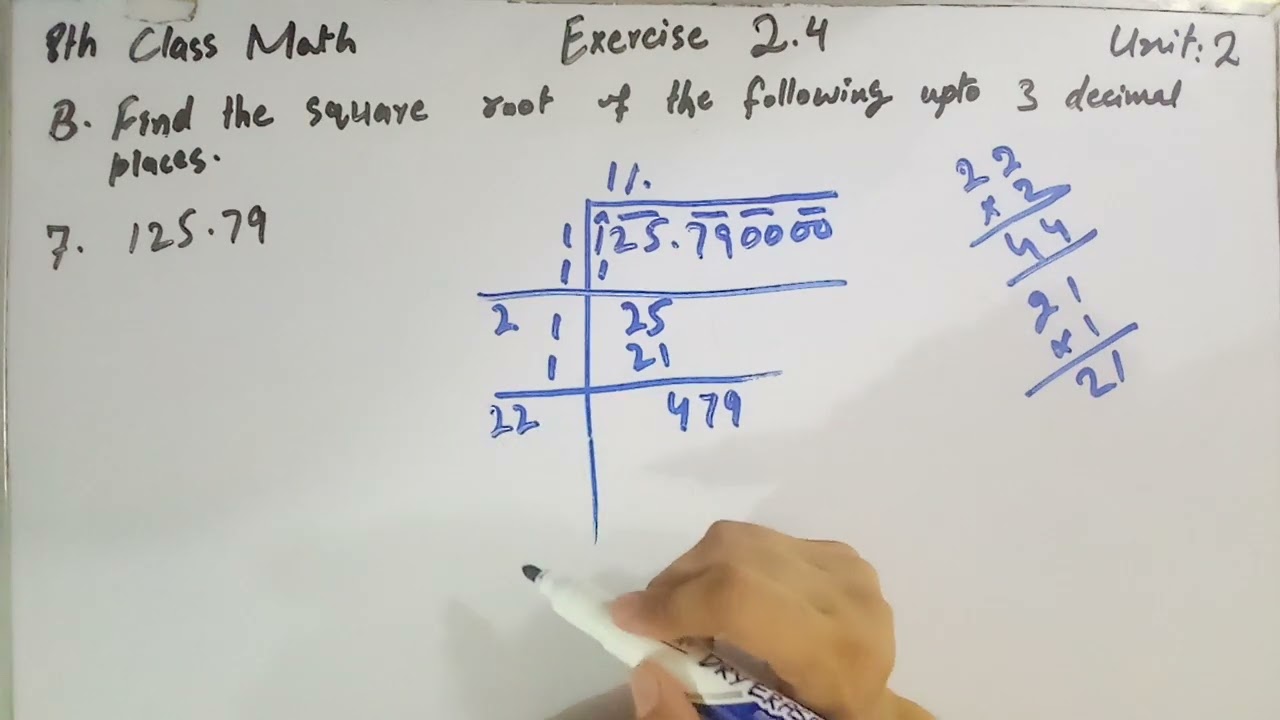 8th Class Math Exercise 2.4 Unit: 2
B. Find the square root of the following upto 3 decimal
places.
7. 125.79
11.
1 125.790000
1 1
2 1 25
1 21
22 479
22
×2
44
21
×1
21
DRY ERASE